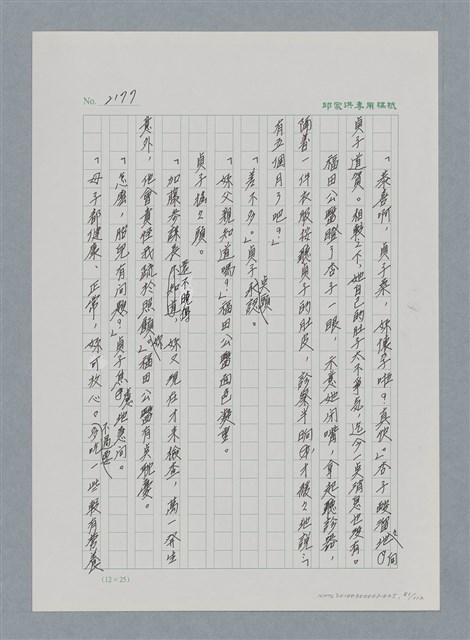 No. 2177
邱家洪專用稿紙
「恭喜啊，貞子桑，妳懷孕啦？真快。」杏子酸溜溜地向
貞子道賀。相較之下，她自己的肚子太不爭氣，迄今一點消息也沒有。
福田公醫瞪了杏子一眼，示意她閉嘴，拿起聽診器，
隔著一件衣服按聽貞子的肚皮，診察半晌，才緩緩地說：「
有五個月了吧？」
「差不多。」貞子點頭承認。
「妳父親知道嗎？」福田公醫面色凝重。
貞子搖搖頭。
「加藤務課長還不曉得，妳又現在才來檢查，萬一發生
意外，他會責怪我疏於照顧妳。」福田公醫有點憂慮。
「怎麼，胎兒有問題？」貞子焦慮地急問。
「母子都健康、正常，妳可放心。不過要多吃一些較有營養
(12×25)